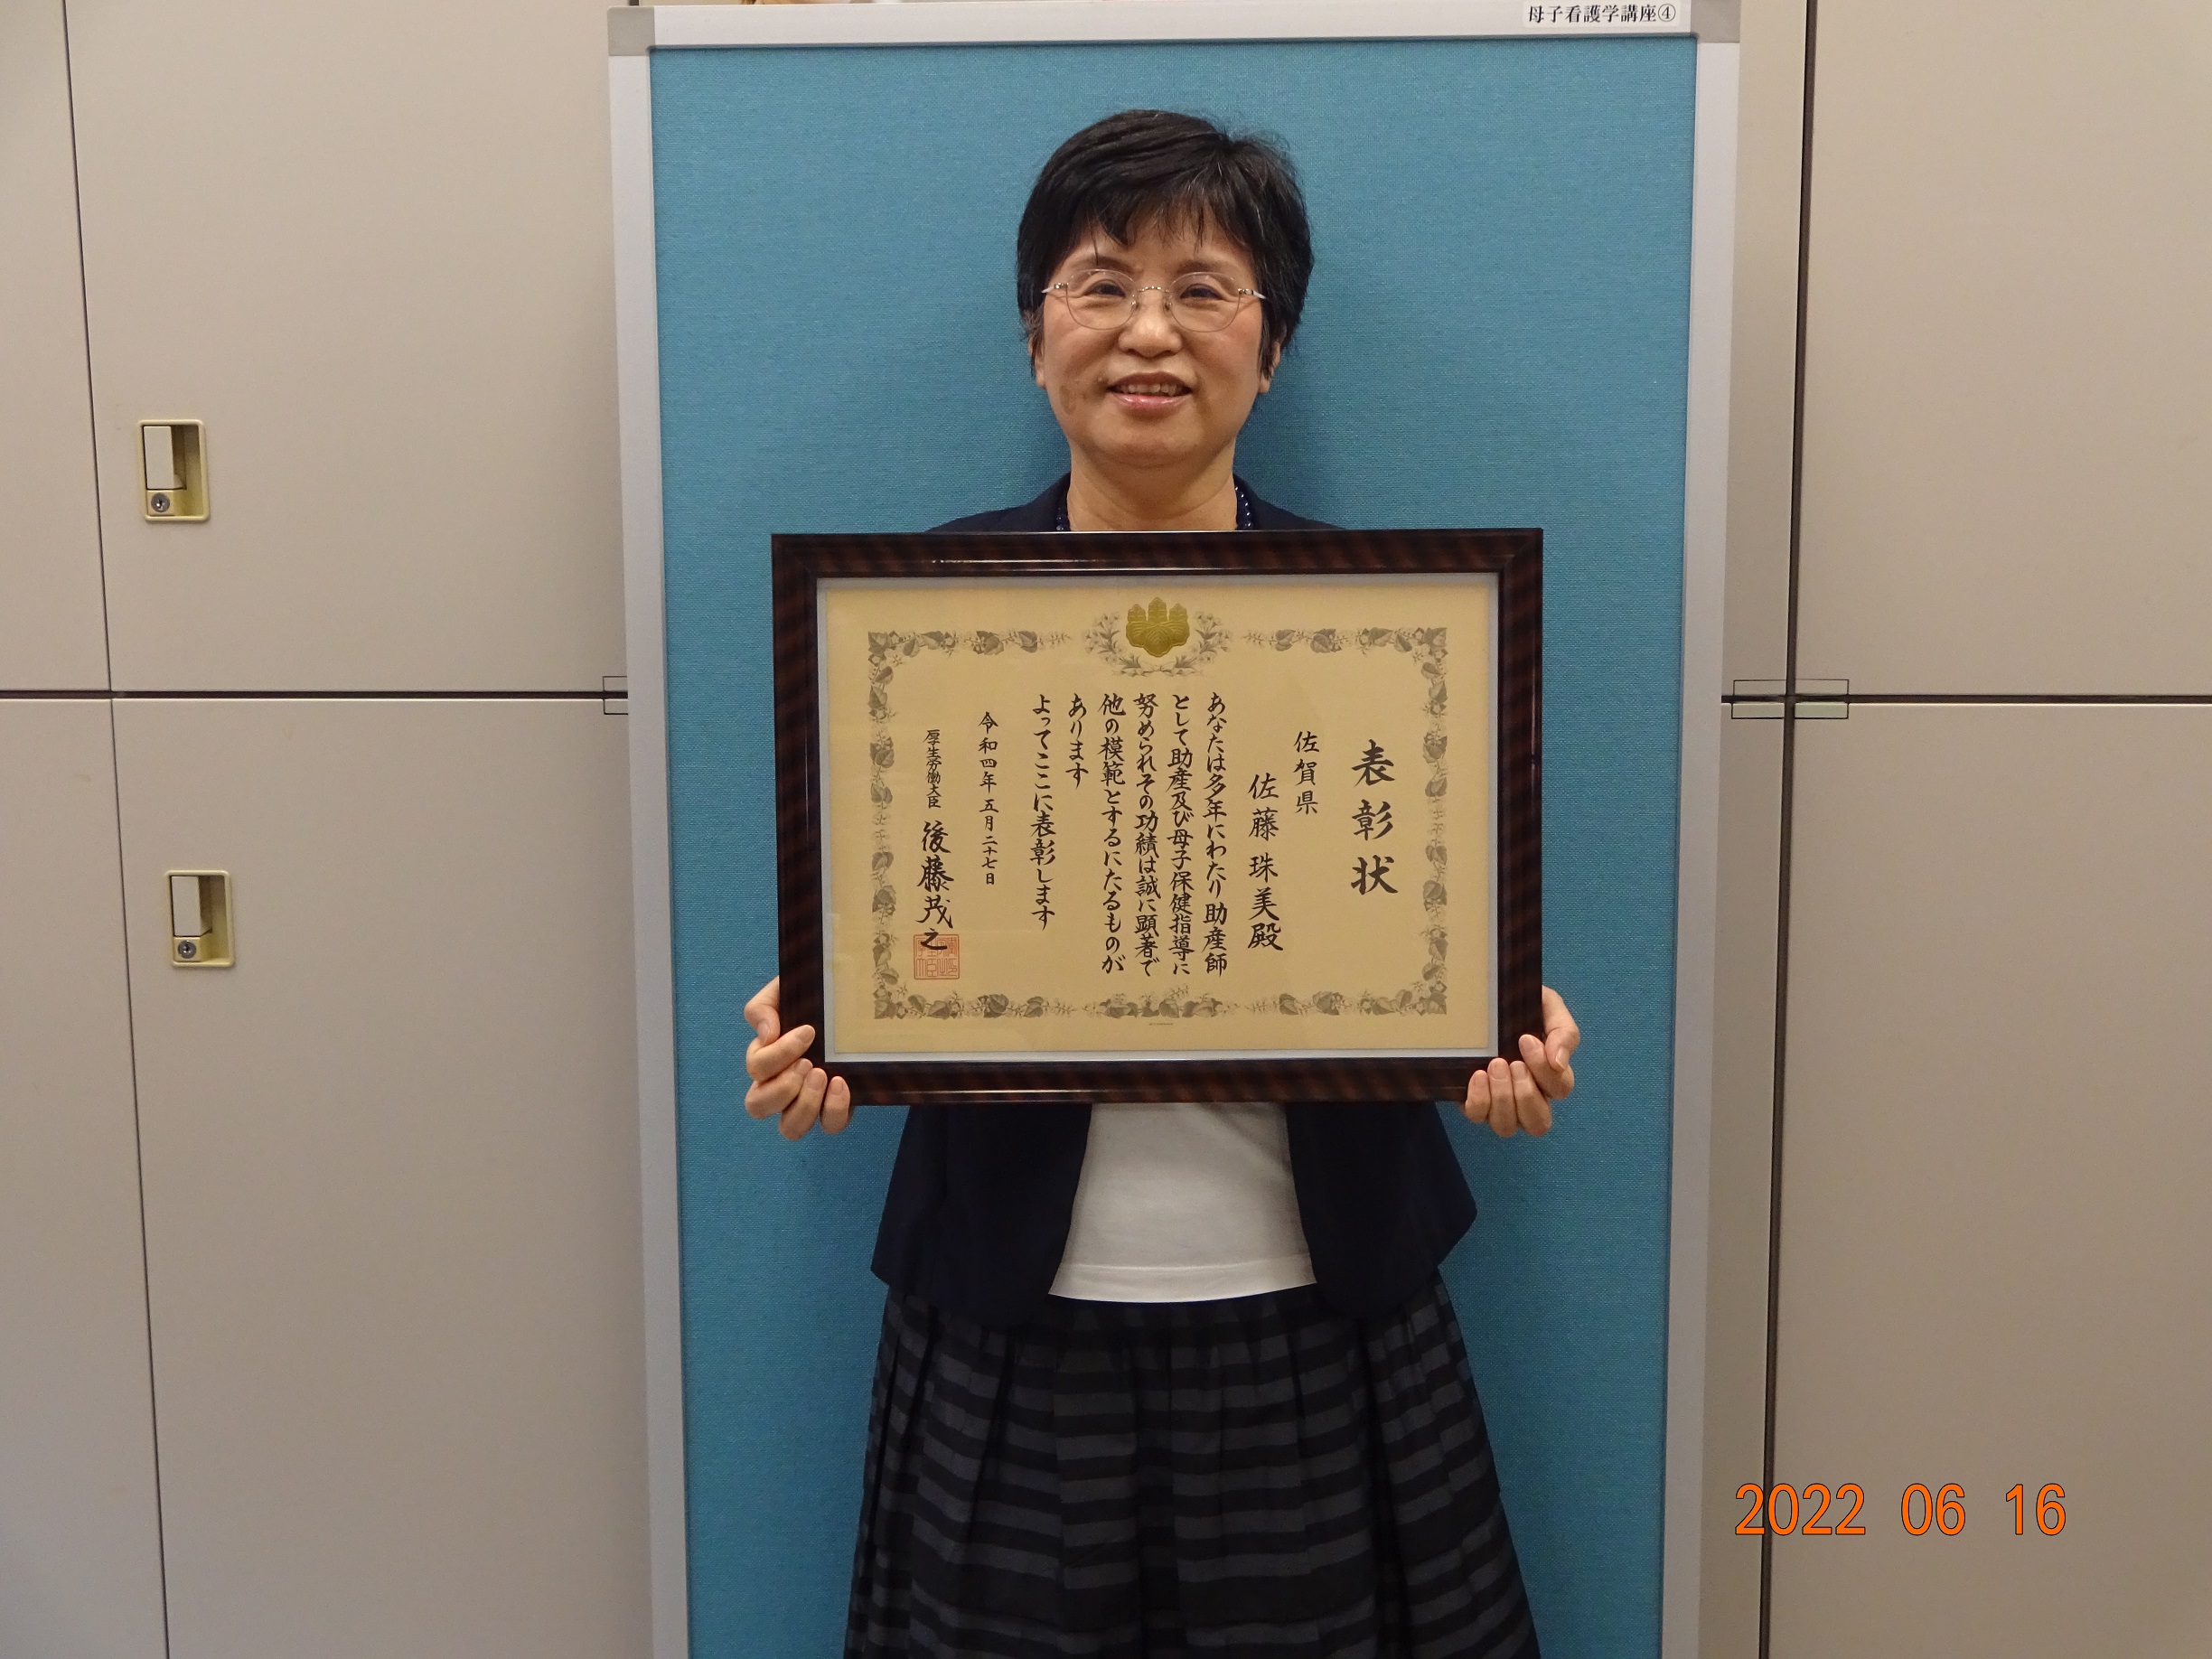 母子看護学講座④
表彰状
佐賀県
佐藤珠美殿
あなたは多年にわたり助産師
として助産及び母子保健指導に
努められその功績は誠に顕著で
他の模範とするにたるものが
あります
よってここに表彰します
令和四年五月二十七日
厚生労働大臣 後藤茂之
2022 06 16